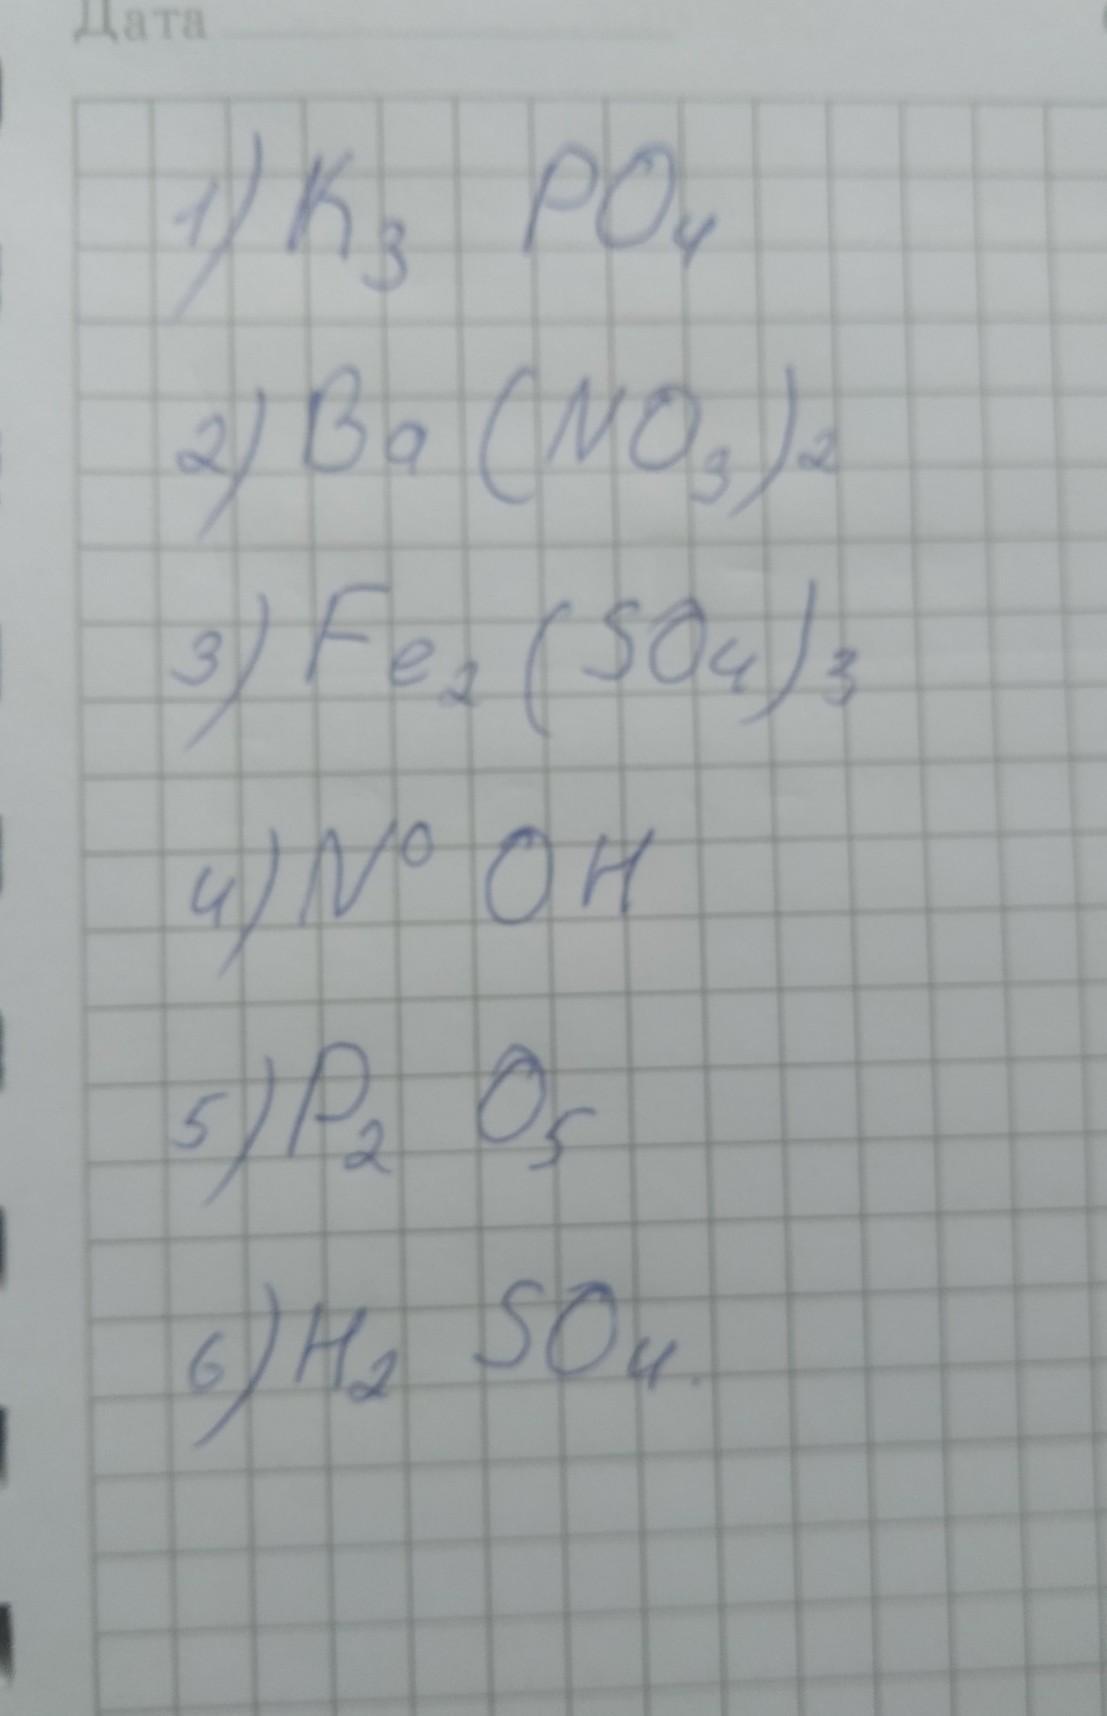 Дата
1) K₃ PO₄
2) Ba (NO₃)₂
3) Fe₂ (SO₄)₃
4) N⁰ OH
5) P₂ O₅
6) H₂ SO₄.